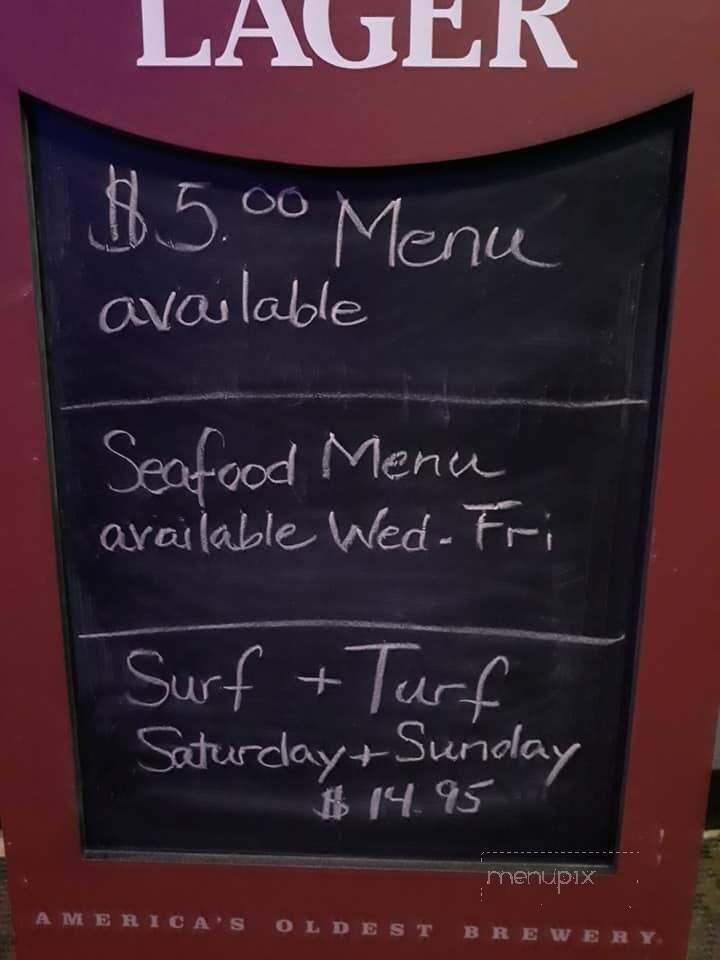 LAGER
$5.00 Menu
available
Seafood Menu
available Wed - Fri
Surf + Turf
Saturday + Sunday
$14.95
menupix
AMERICA'S OLDEST BREWERY.